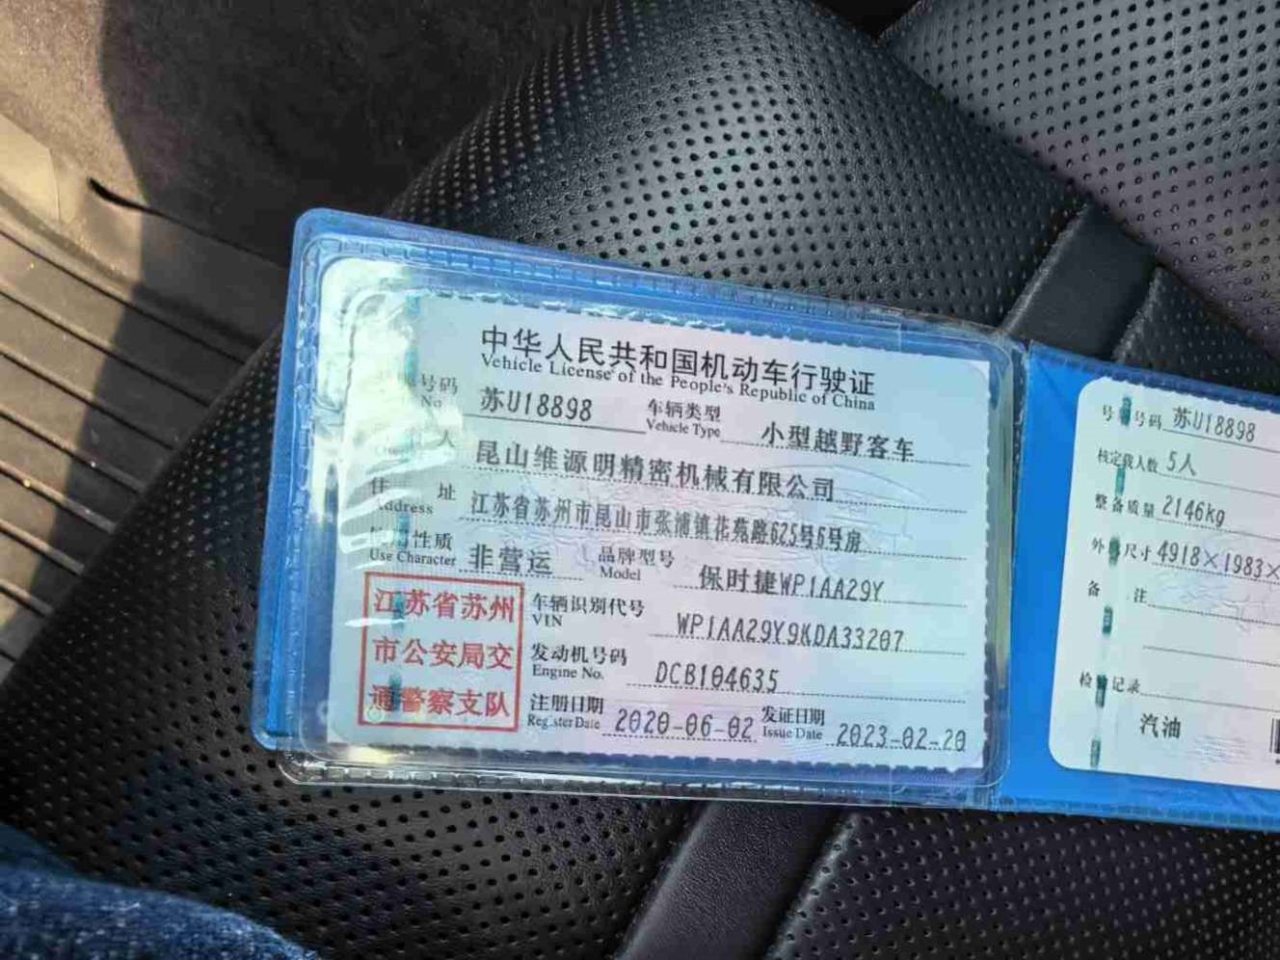 中华人民共和国机动车行驶证
Vehicle License of the People's Republic of China
号码 苏U18898 车辆类型 小型越野客车
No. Vehicle Type
人 昆山维源明精密机械有限公司
住 址 江苏省苏州市昆山市张浦镇花苑路625号6号房
Address
使用性质 非营运 品牌型号 保时捷WP1AA29Y
Use Character Model
江苏省苏州
市公安局交
通警察支队
车辆识别代号 WP1AA29Y9KDA33207
VIN
发动机号码 DCB104635
Engine No.
注册日期 2020-06-02 发证日期 2023-02-20
Register Date Issue Date
号牌号码 苏U18898
核定载人数 5人
整备质量 2146kg
外廓尺寸 4918×1983×
备 注
检验记录
汽油